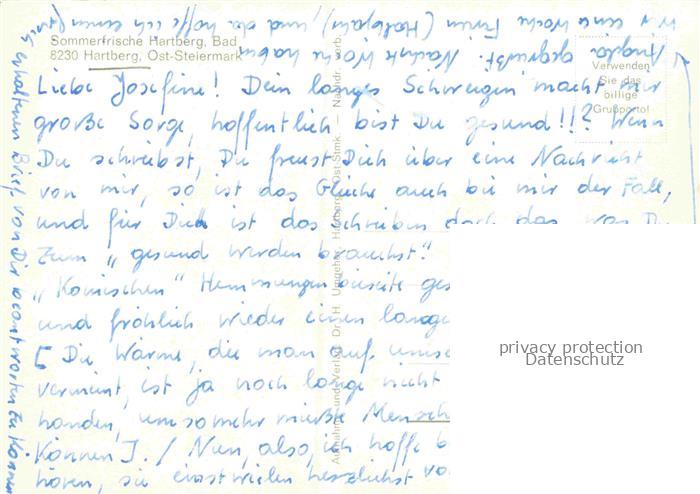 Sommerfrische Hartberg, Bad
8230 Hartberg, Ost-Steiermark
Verwenden
Sie das
billige
Grußporto!
Liebe Josefine! Dein langes Schweigen macht mir
große Sorge, hoffentlich bist Du gesund!!!? Wenn
Du schreibst, Du freust Dich über eine Nachricht
von mir, so ist das Gleiche auch bei mir der Fall,
und für Dich ist das Schreiben doch das, was Du
zum „gesund werden brauchst".
„Komischen" Hemmungen beiseite
und fröhlich wieder einen
[Die Wärme, die man auf
vermeint, ist ja noch lange nicht
handen, umsomehr müßte Mensch
können]. / Nun, also, ich hoffe
hören, sei einstweilen herzlichst
Angela gegrüßt. Nächste Woche haben
wir eine Woche Ferien (Halbjahr), und da hoffe ich einen
erhaltenen Brief von Dir beantworten zu können
Aufnahme und Verlag Dr. H. Umgeher, Hartberg, Ost-Stmk. — Nachdr. verb.
privacy protection
Datenschutz